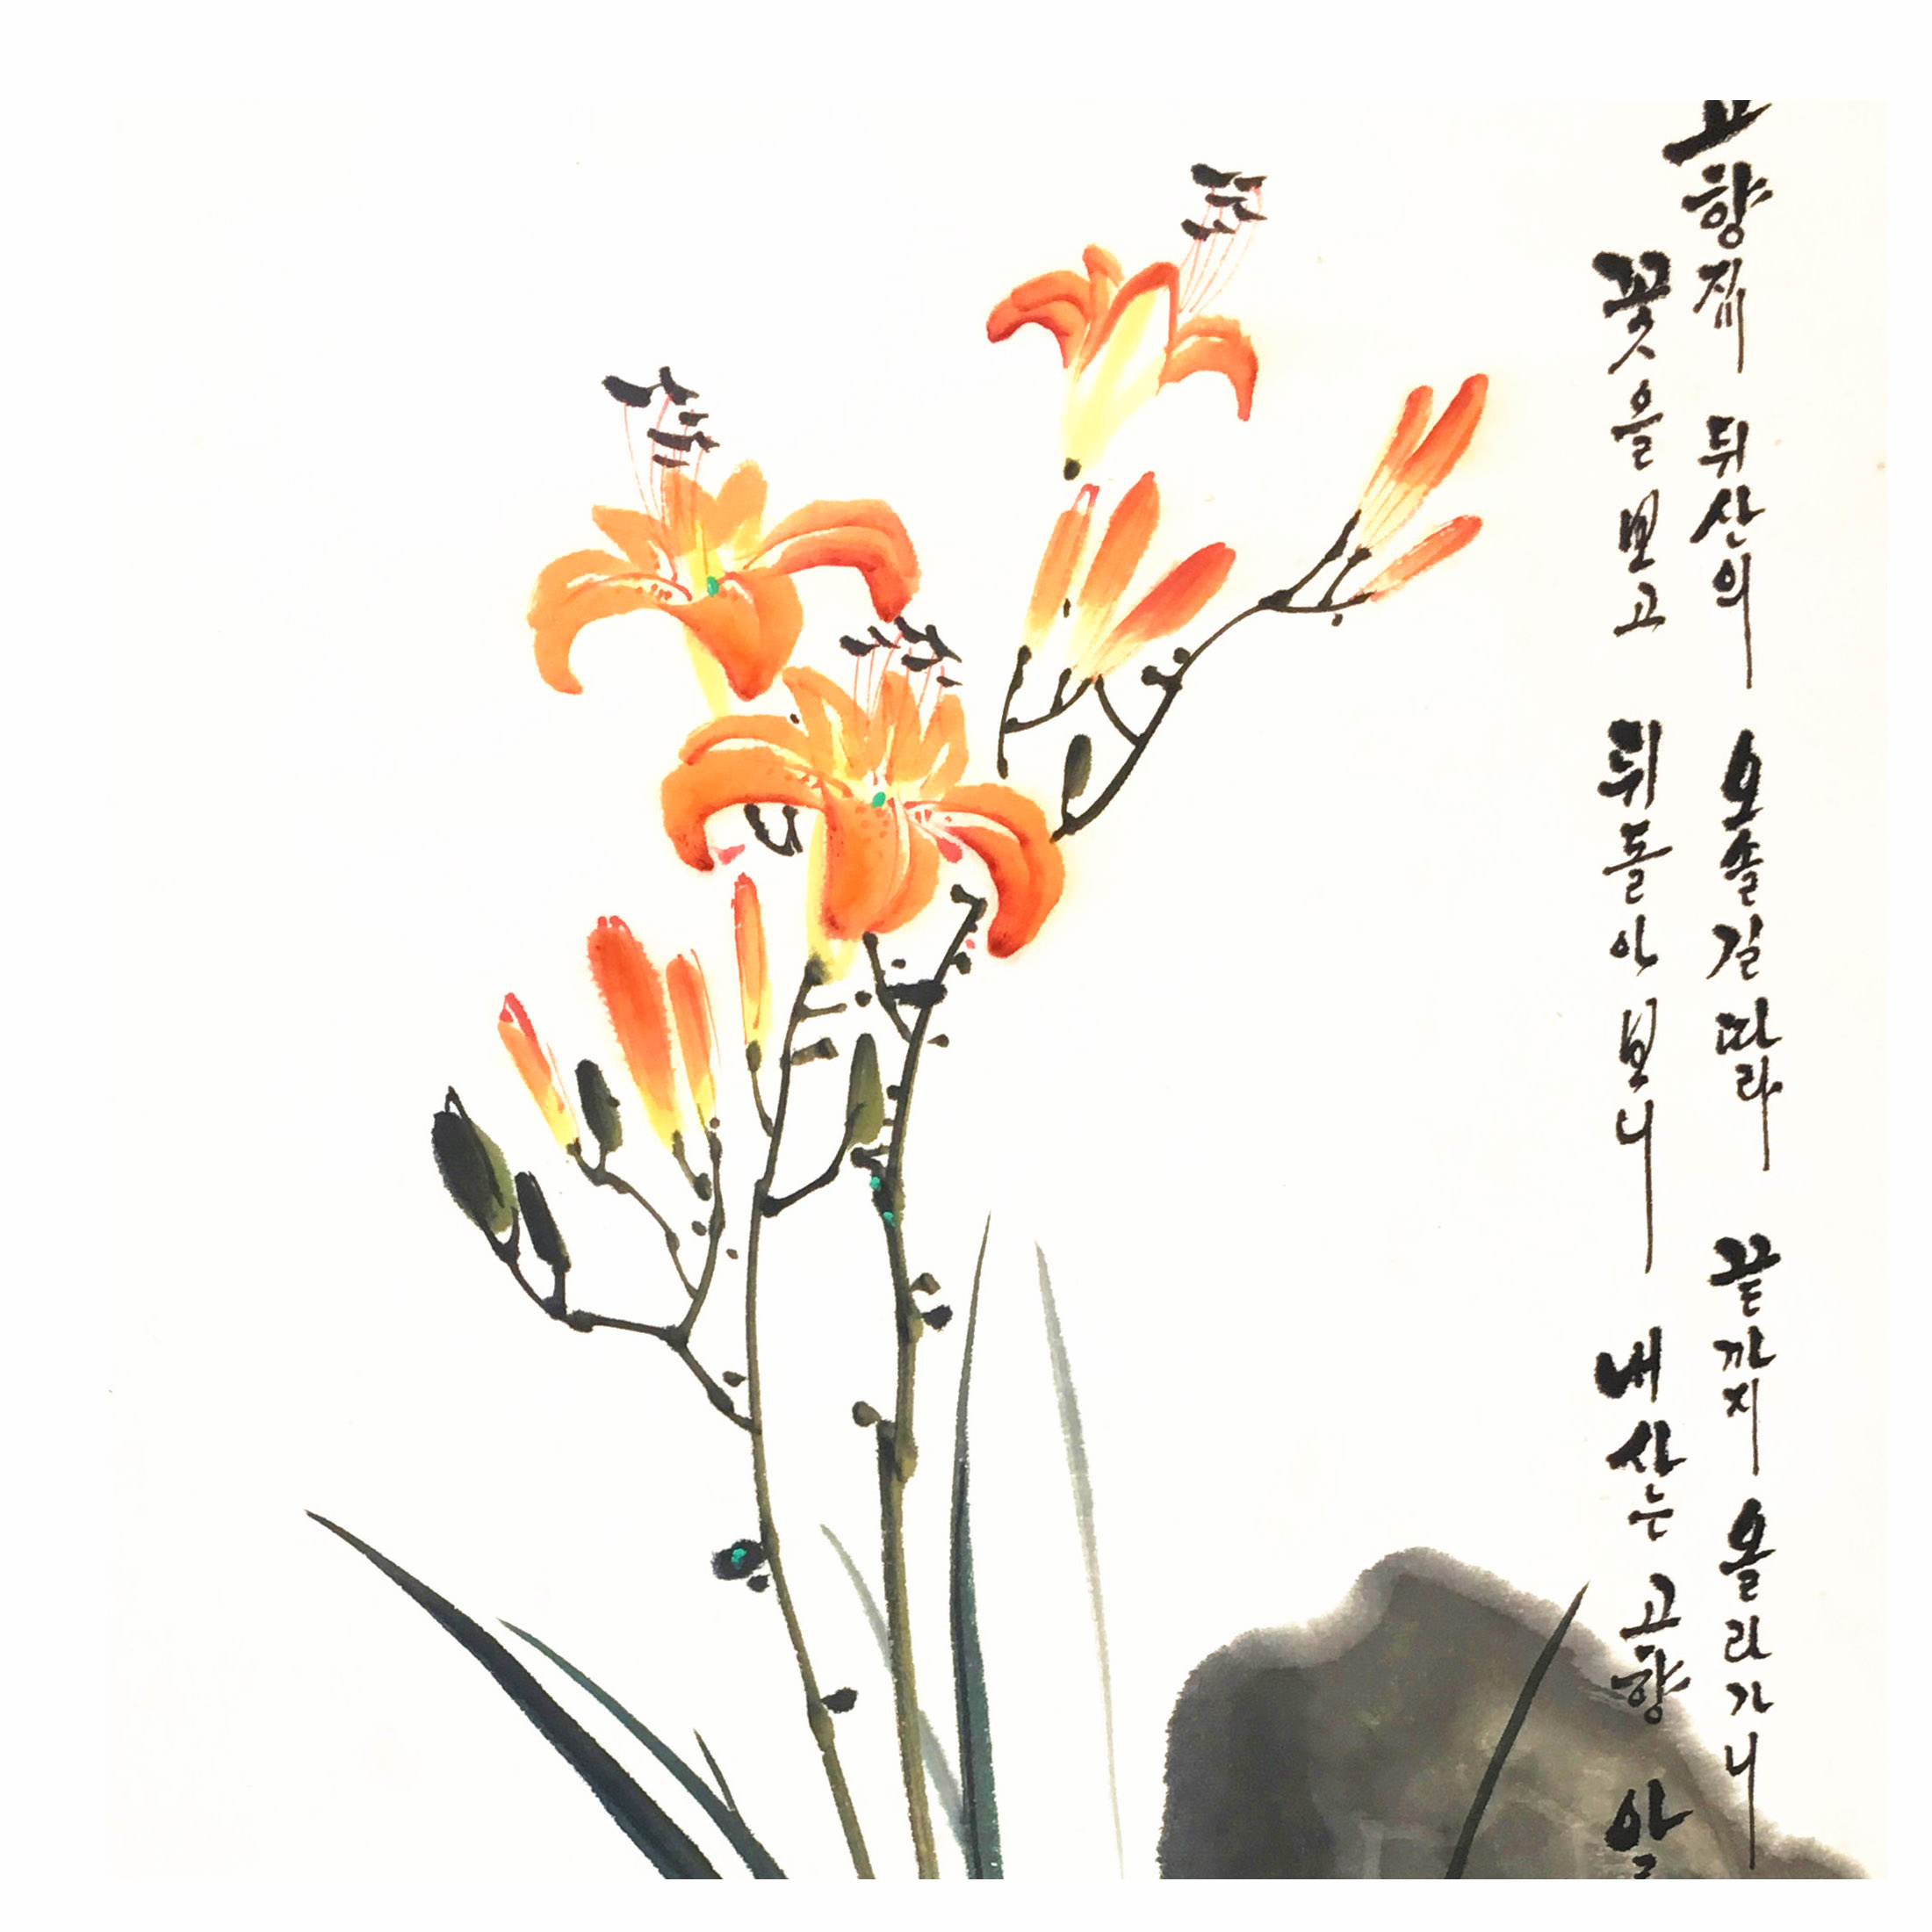 고향집 뒤산의 오솔길 따라 끝까지 올라가니
꽃을 보고 뒤돌아 보니 내 산은 고향